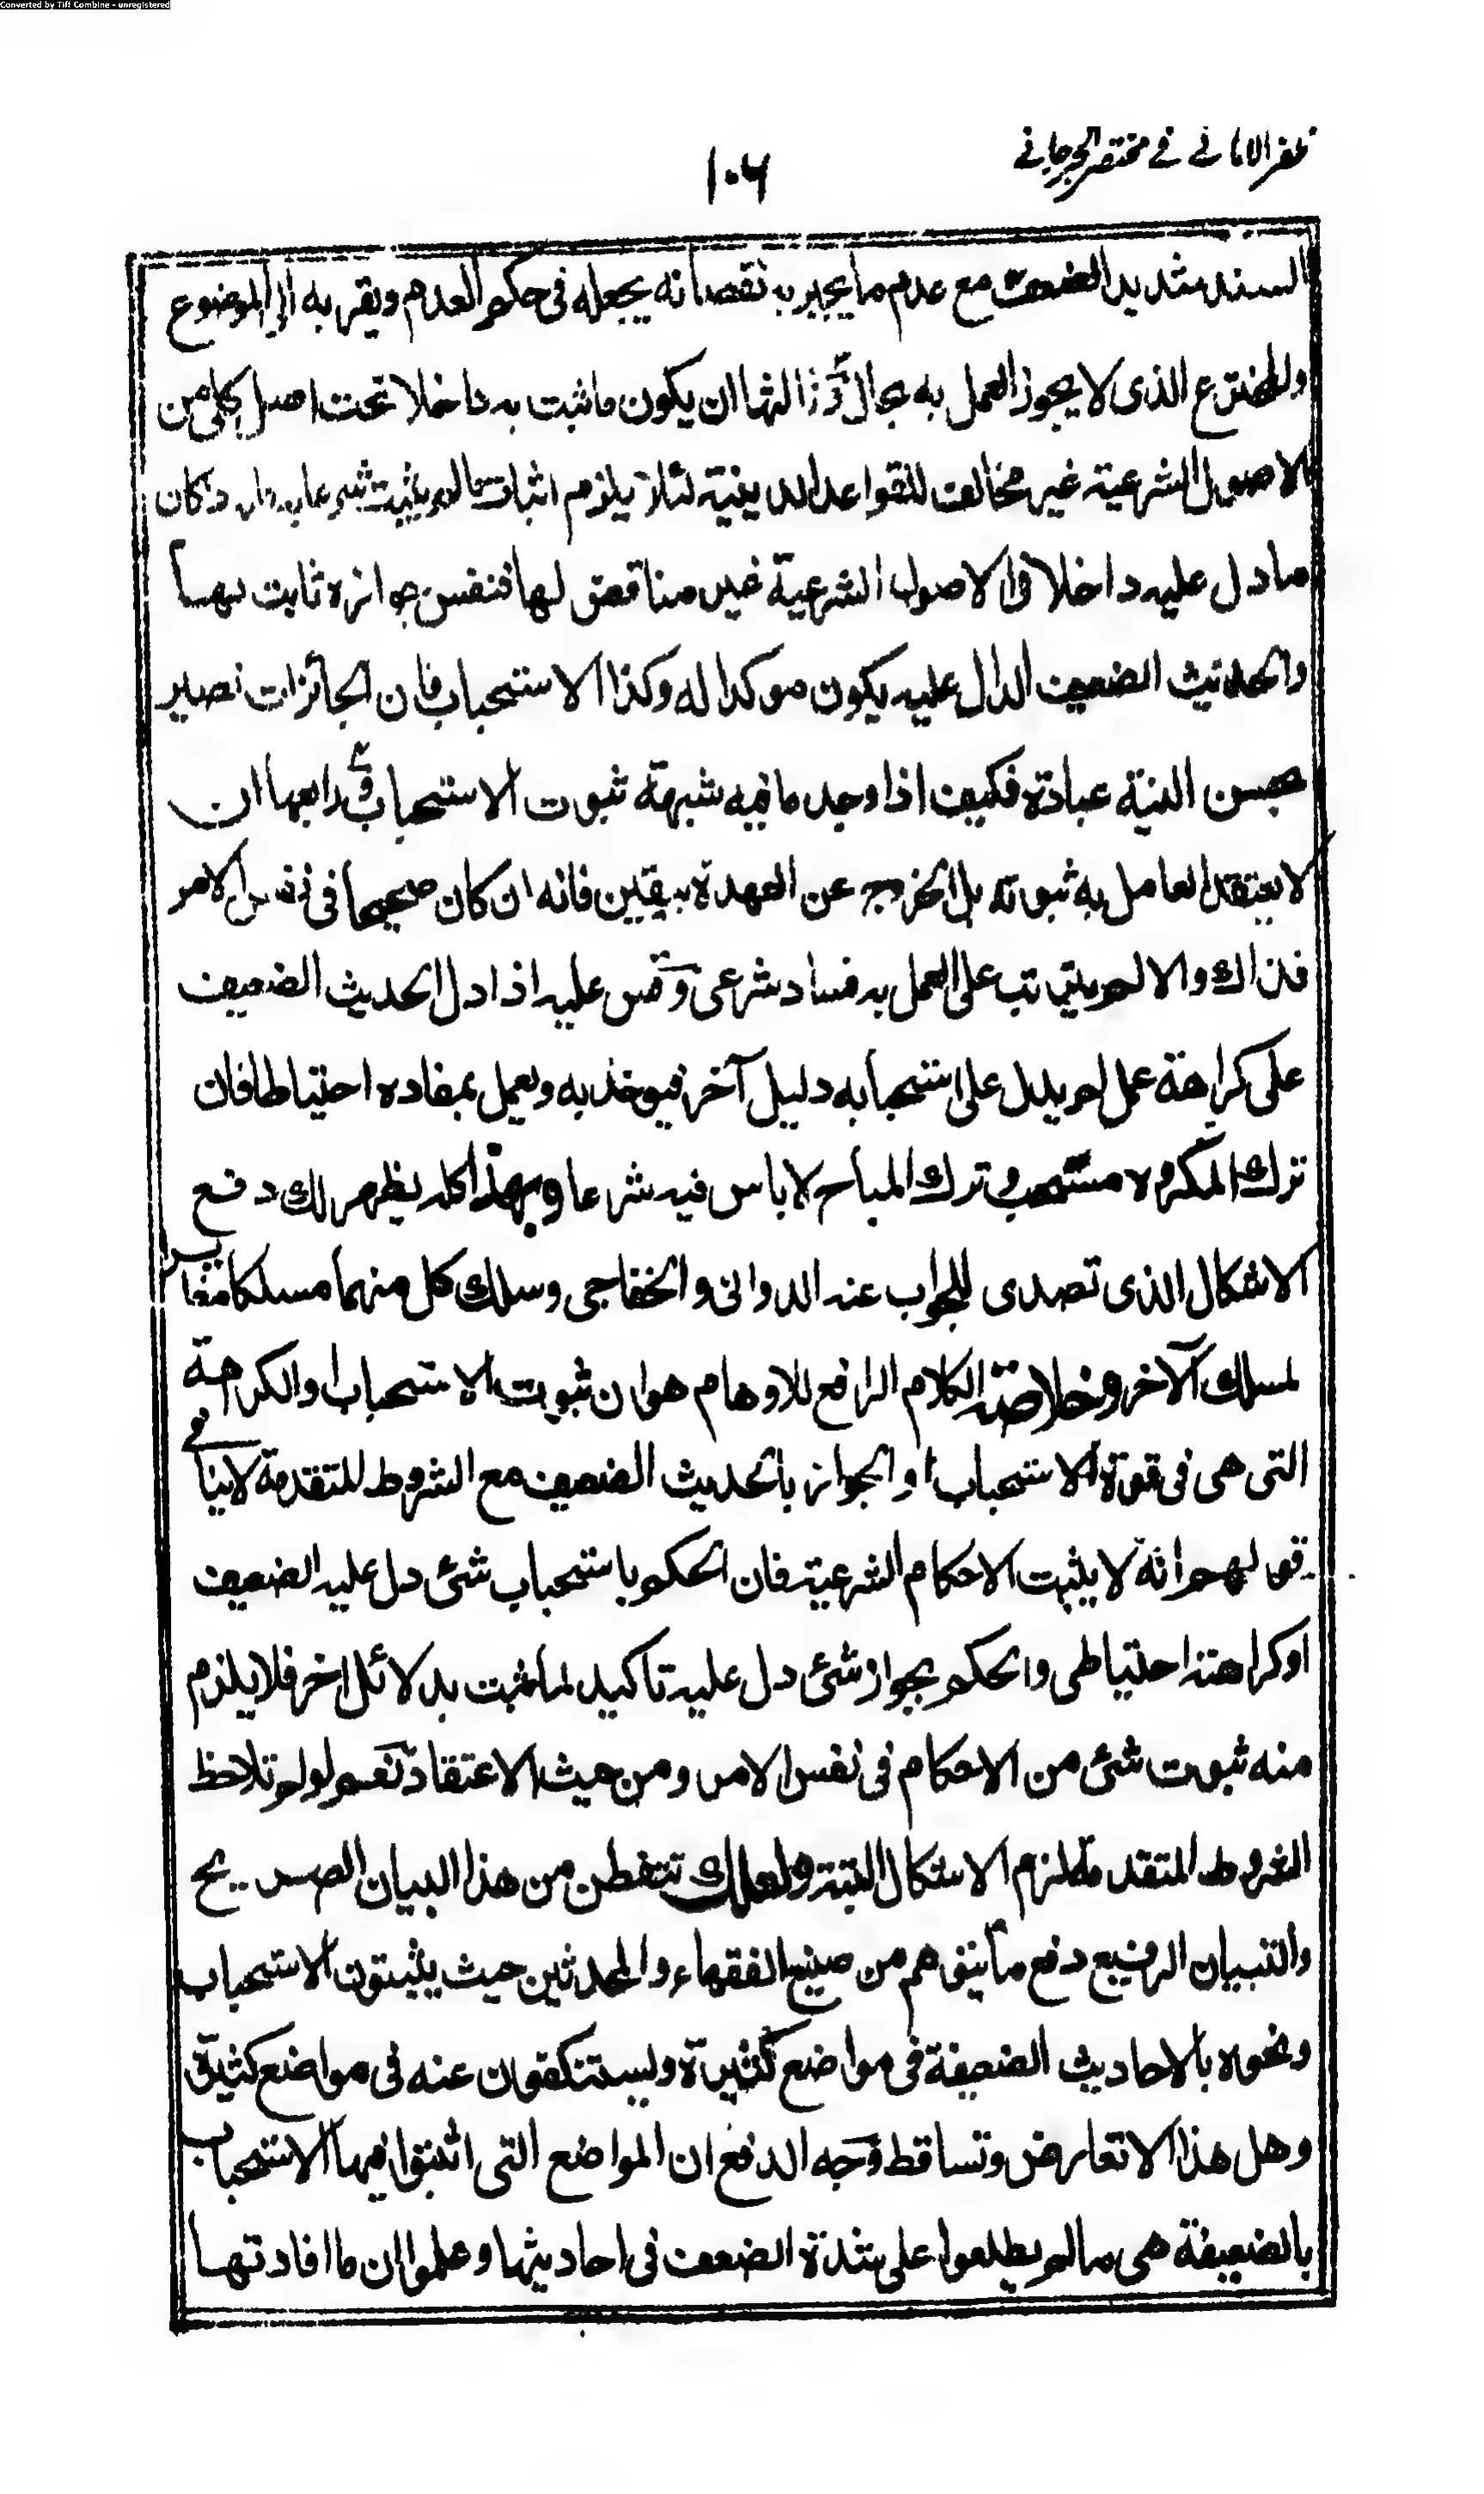 Converted by Tiff Combine - unregistered
ظفر الامانی فی مختصر الجرجانی
١٠٦
السند شديد الضعف مع عدم ما يجبر به نقصانه يجعله فى حكم العدم ويقربه الى الموضوع
والمخترع الذى لا يجوز العمل به بحال وثالثها ان يكون ما ثبت به داخلا تحت اصل كلى من
الاصول الشرعية غير مخالف للقواعد الدينية لئلا يلزم اثبات ما لم يثبت شرعا به كان
ما دل عليه داخلا فى الاصول الشرعية غير مناقض لها فنفس جوازه ثابت بها
والحديث الضعيف الدال عليه يكون موكدا له وكذا الاستحباب فان الجائزات تصير
بحسن النية عبادة فكيف اذا وجد ما فيه شبهة ثبوت الاستحباب ورابعها ان
لا يعتقد العامل به ثبوته بل الخروج عن العهدة بيقين فانه ان كان صحيحا فى نفس الامر
فذاك والا لم يترتب على العمل به فساد شرعى وقس عليه اذا دل الحديث الضعيف
على كراهة عمل لم يدل على استحبابه دليل آخر فيوخذ به ويعمل بمفاده احتياطا فان
ترك المكروه مستحب وترك المباح لا باس فيه شرعا وبهذا كله يظهر لك دفع
الاشكال الذى تصدى للجواب عنه الدوانى والخفاجى وسلك كل منهما مسلكا مغايرا
لمسلك الآخر وخلاصة الكلام الرافع للاوهام هو ان ثبوت الاستحباب او الكراهة
التى هى فى قوة الاستحباب او الجواز بالحديث الضعيف مع الشروط المتقدمة لا ينافى
قولهم انه لا يثبت الاحكام الشرعية فان الحكم باستحباب شئ دل عليه الضعيف
او كراهته احتياطى والحكم بجواز شئ دل عليه تاكيد لما ثبت بدلائل اخر فلا يلزم
منه ثبوت شئ من الاحكام فى نفس الامر ومن حيث الاعتقاد نعم لو لم تلاحظ
الشروط المتقدمة لزم الاشكال البتة ولعلك تتفطن من هذا البيان الصريح
والتبيان الرفيع دفع ما يتوهم من صنيع الفقهاء والمحدثين حيث يثبتون الاستحباب
ونحوه بالاحاديث الضعيفة فى مواضع كثيرة ويستنكفون عنه فى مواضع كثيرة
وهل هذا الا تعارض وتساقط وجه الدفع ان المواضع التى اثبتوا فيها الاستحباب
بالضعيفة هى ما لم يطلعوا على شدة الضعف فى احاديثها وعلموا ان ما افادتها